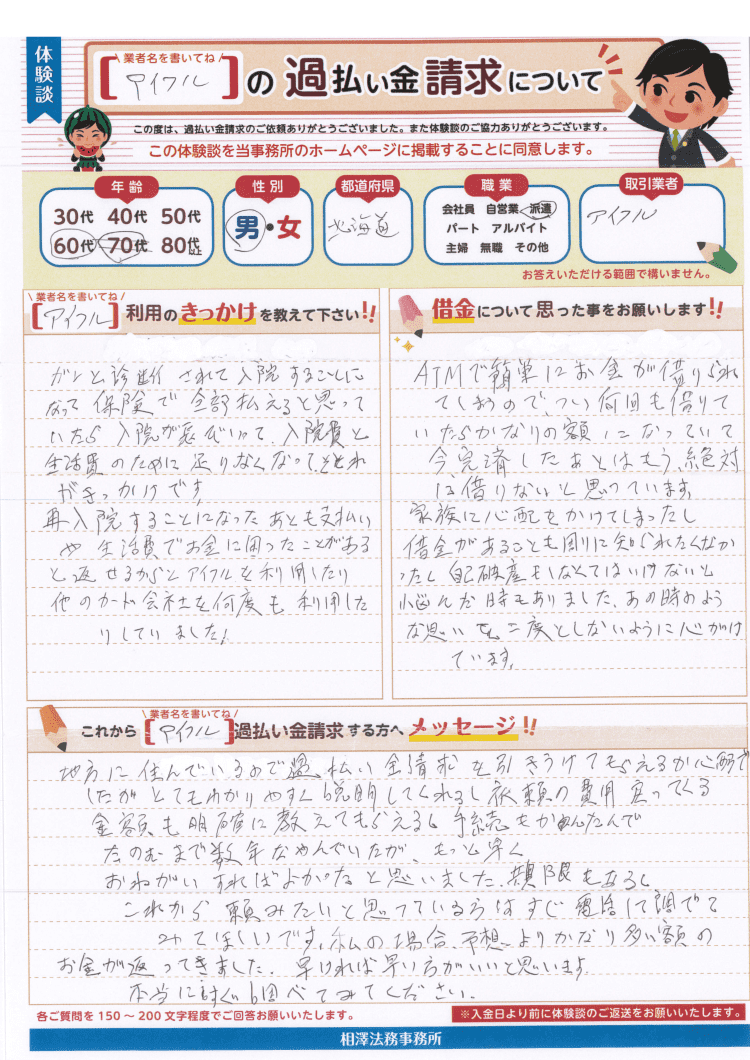 体験談
業者名を書いてね
[アイフル]の過払い金請求について
この度は、過払い金請求のご依頼ありがとうございました。また体験談のご協力ありがとうございます。
この体験談を当事務所のホームページに掲載することに同意します。
年齢
30代 40代 50代
60代 70代 80代以上
性別
男・女
都道府県
北海道
職業
会社員 自営業 派遣
パート アルバイト
主婦 無職 その他
取引業者
アイフル
お答えいただける範囲で構いません。
業者名を書いてね
[アイフル]利用のきっかけを教えて下さい!!
ガンと診断されて入院することに
なって保険で全部払えると思って
いたら入院が長びいて、入院費と
生活費のために足りなくなって、それ
がきっかけです
再入院することになったあとも支払い
や生活費でお金に困ったことがある
と返せるからとアイフルを利用したり
他のカード会社を何度も利用した
りしていました!
借金について思った事をお願いします!!
ATMで簡単にお金が借りられ
てしまうので、つい何回も借りて
いたらかなりの額になっていて
今完済したあとはもう、絶対
に借りないと思っています。
家族に心配をかけてしまったし
借金があることも周りに知られたくなか
ったし自己破産もしなくてはいけないと
悩んだ時もありました、あの時のよう
な思いを二度としないように心がけ
ています。
これから[アイフル]過払い金請求する方へメッセージ!!
業者名を書いてね
地方に住んでいるので過払い金請求を引きうけてもらえるか心配で
したがとてもわかりやすく説明してくれるし依頼の費用戻ってくる
金額も明確に教えてもらえるし手続もかんたんで
たのむまで数年なやんでいたが、もっと早く
おねがいすればよかったなと思いました、期限もあるし
これから頼みたいと思っているならすぐ電話して調べて
みてほしいです、私の場合、予想よりかなり多い額の
お金が返ってきました、早ければ早い方がいいと思います
本当にすぐ調べてみてください。
各ご質問を150〜200文字程度でご回答お願いいたします。
※入金日より前に体験談のご返送をお願いいたします。
相澤法務事務所